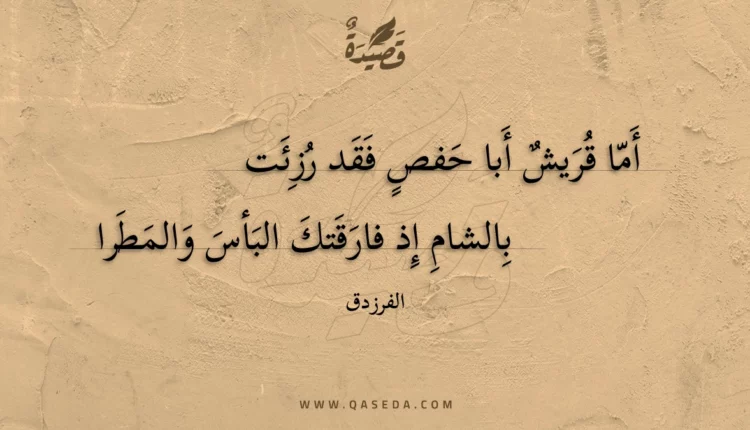 قَصِيدَةٌ
أَمّا قُرَيشٌ أَبا حَفصٍ فَقَد رُزِئَت
بِالشامِ إِذ فارَقَتكَ البَأسَ وَالمَطَرا
الفرزدق
WWW.QASEDA.COM